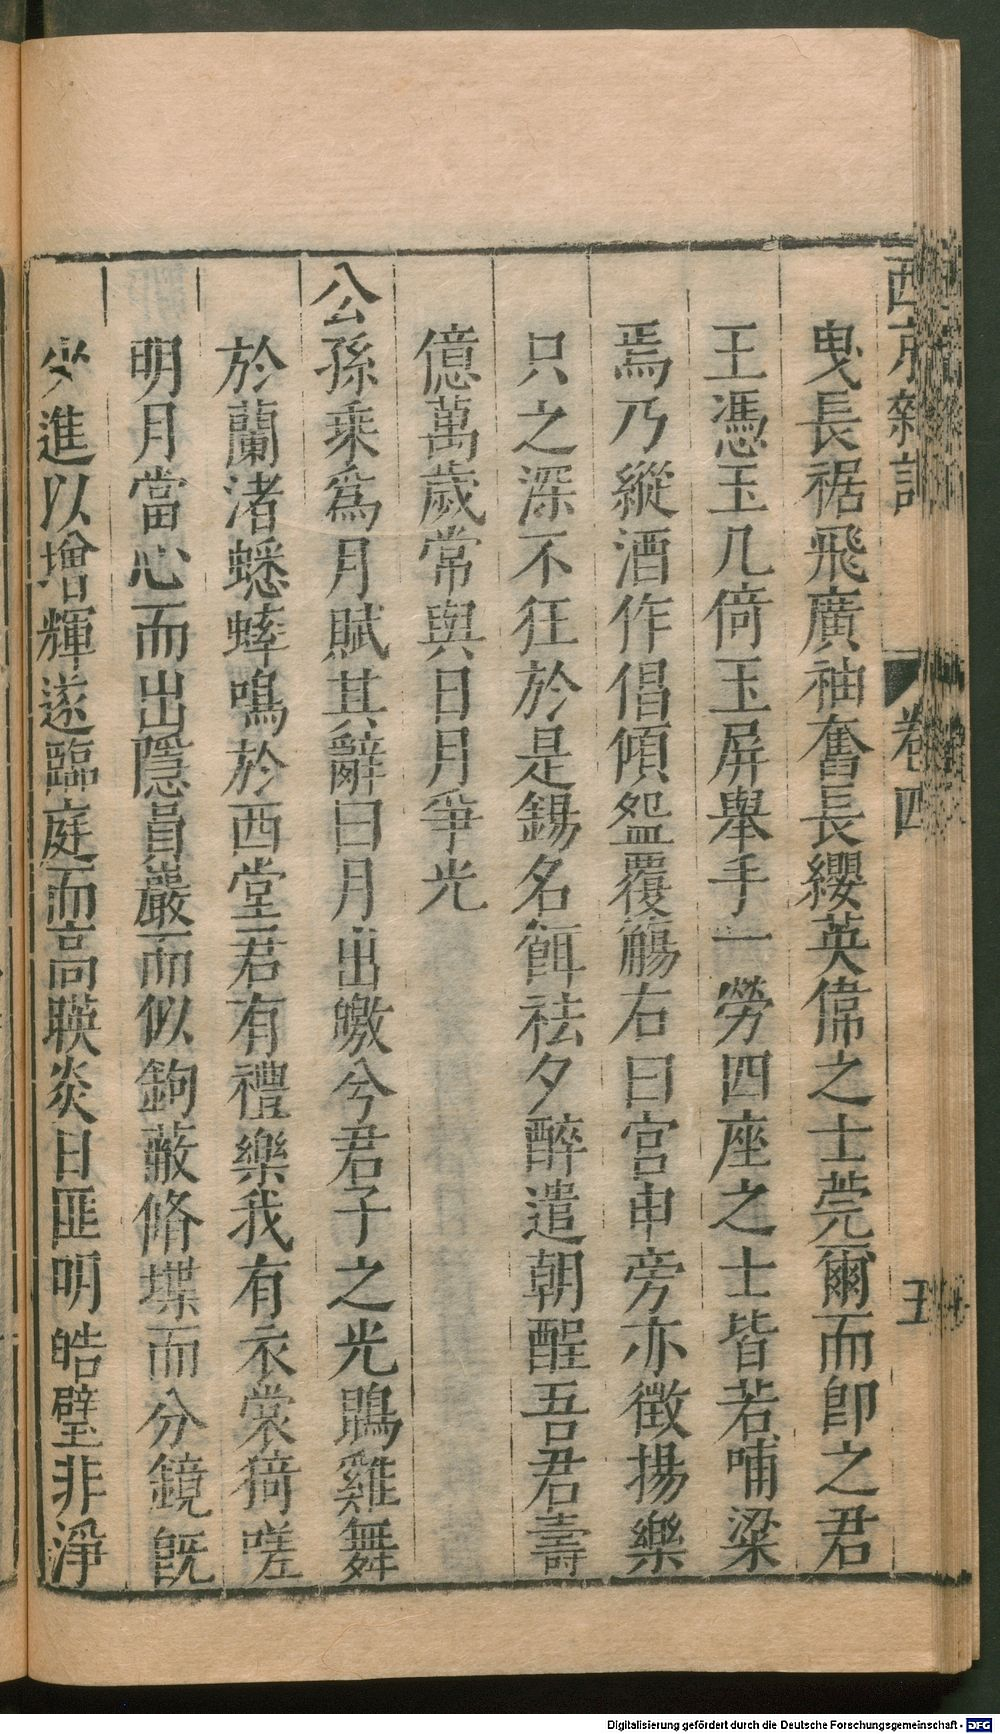 西京雜記
卷四
五
曳長裾飛廣袖奮長纓英偉之士莞爾而卽之君
王憑玉几倚玉屏舉手一勞四座之士皆若哺粱
焉乃縱酒作倡傾盌覆觴右曰宮申旁亦徵揚樂
只之深不狂於是錫名餌袪夕醉遣朝酲吾君壽
億萬歲常與日月爭光
公孫乗爲月賦其辭曰月出皦兮君子之光鵾雞舞
於蘭渚蟋蟀鳴於西堂君有禮樂我有衣裳猗嗟
明月當心而出隱員巖而似鉤蔽脩堞而分鏡旣
少進以增輝遂臨庭而高暎炎日匪明皓璧非淨
Digitalisierung gefördert durch die Deutsche Forschungsgemeinschaft - DFG